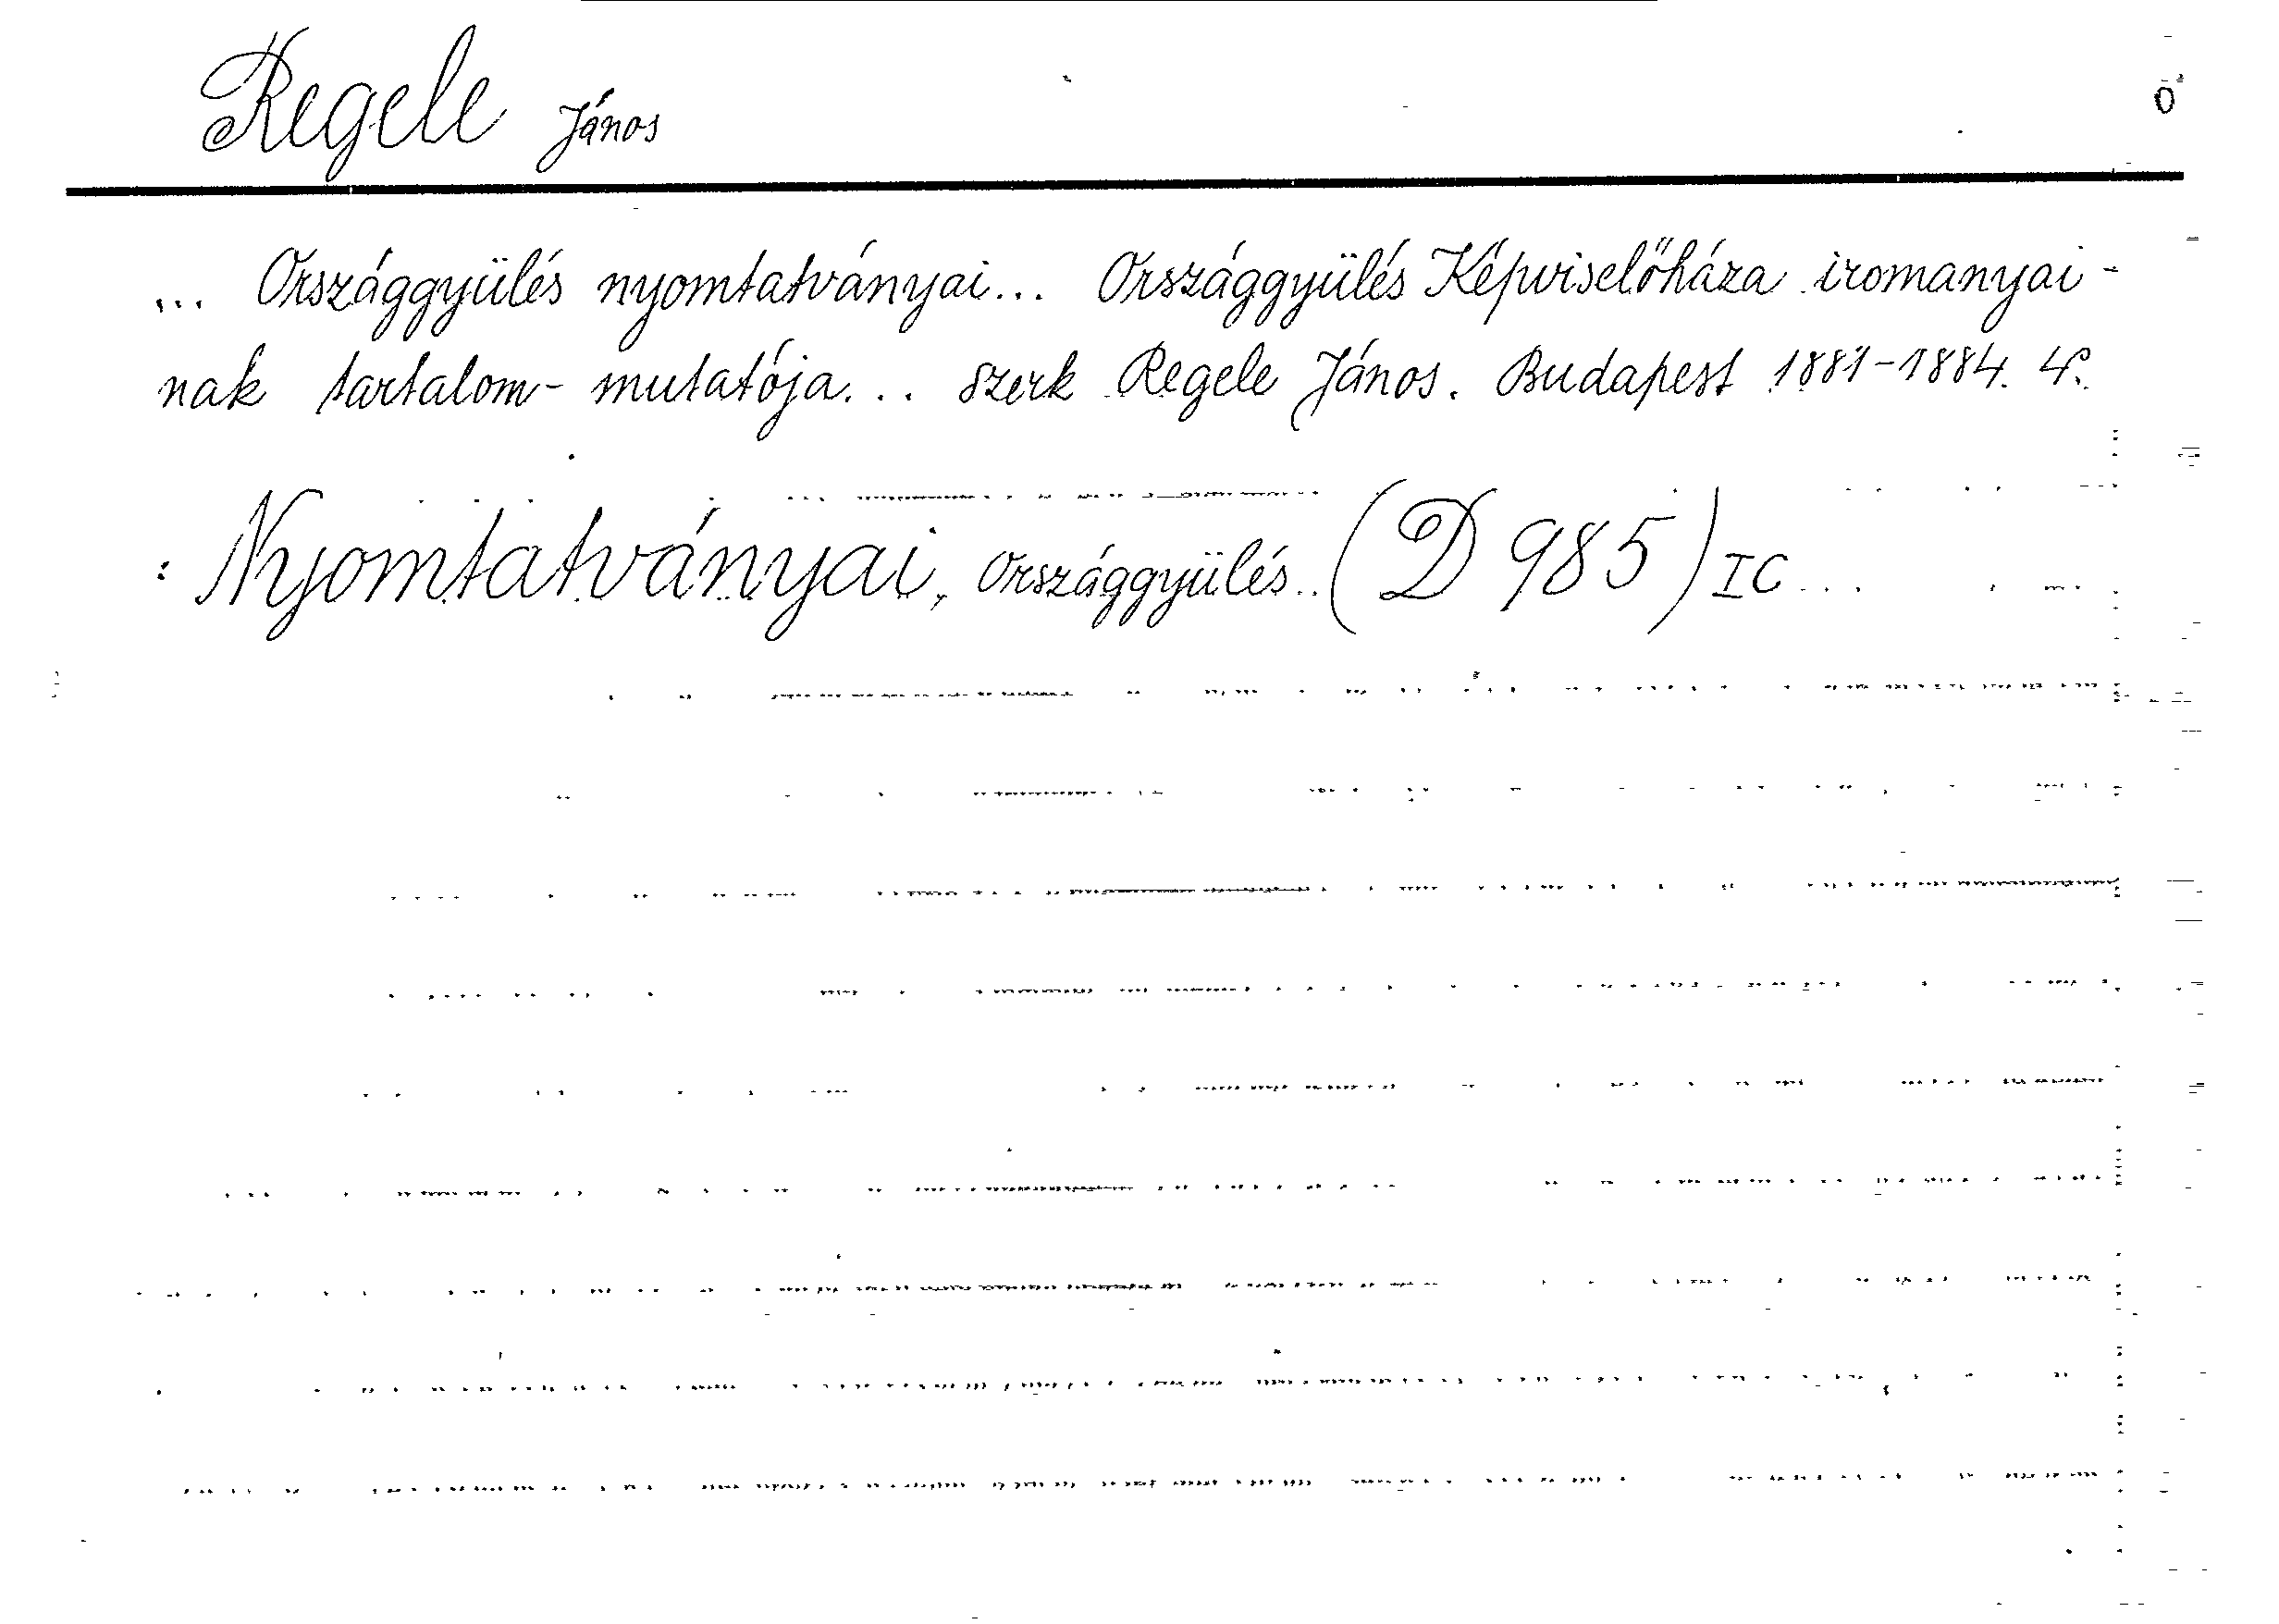 Regele János
... Országgyülés nyomtatványai... Országgyülés Képviselőháza iromanyai-
nak tartalom- mutatója... szerk Regele János. Budapest 1881-1884. 4°.
: Nyomtatványai, Országgyülés..(D 985) IC...